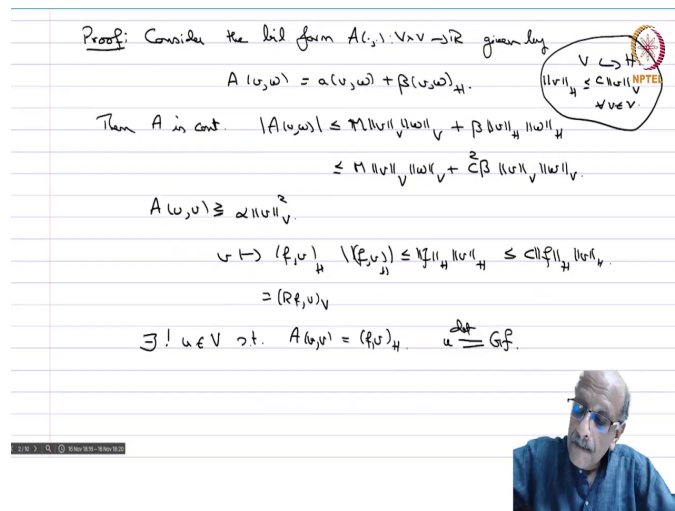 Proof: Consider the bil form A(·,·): V×V → ℝ given by
A(v,w) = a(v,w) + β(v,w)_H.
V ↪ H.
‖v‖_H ≤ C‖v‖_V
∀ v ∈ V.
NPTEL
Then A is cont. |A(v,w)| ≤ M‖v‖_V‖w‖_V + β‖v‖_H‖w‖_H
≤ M‖v‖_V‖w‖_V + C²β‖v‖_V‖w‖_V.
A(v,v) ≥ α‖v‖²_V.
v ↦ (f,v)_H |(f,v)_H| ≤ ‖f‖_H‖v‖_H ≤ C‖f‖_H‖v‖_V.
= (Rf,v)_V
∃! u ∈ V s.t. A(u,v) = (f,v)_H. u =^def Gf.
2/10 16 Nov 18:16 – 16 Nov 18:20